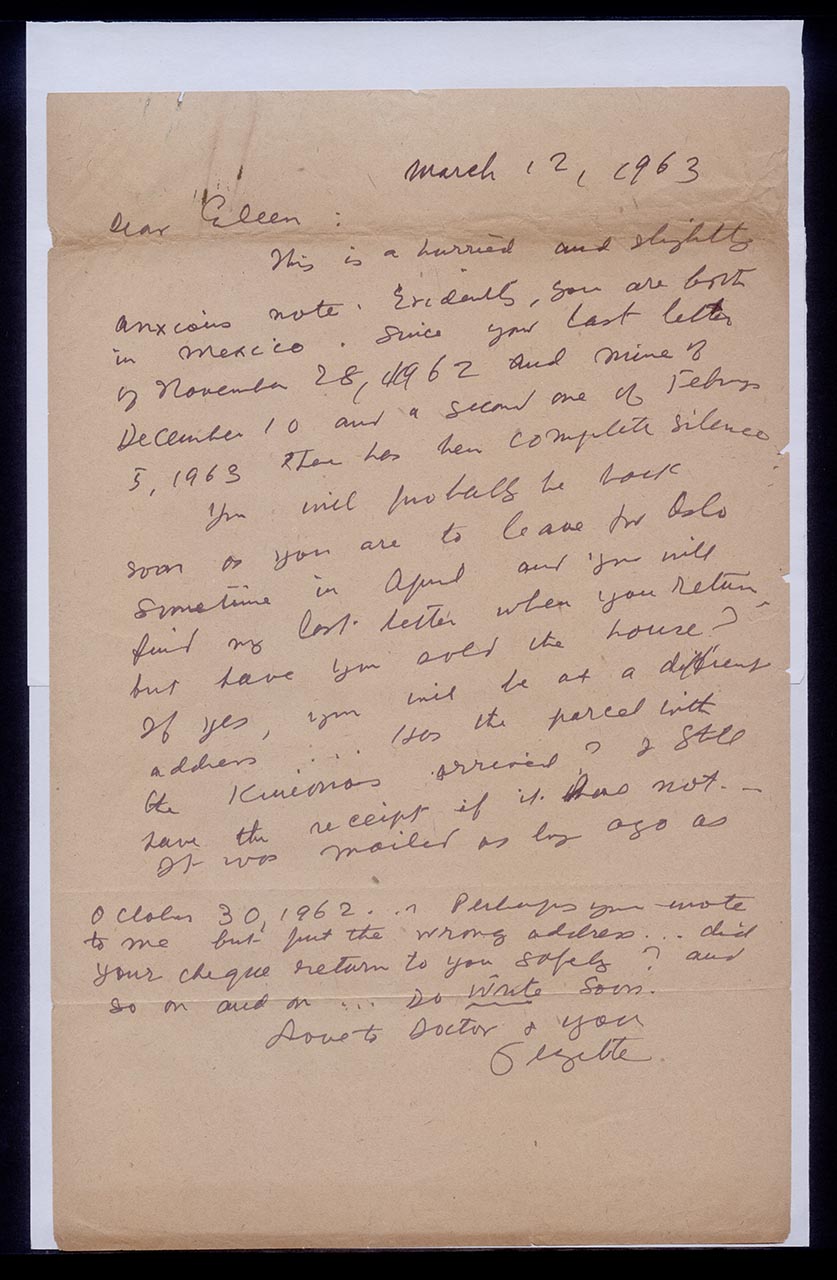 March 12, 1963
Dear Eileen :
This is a hurried and slightly
anxious note. Evidently, you are both
in Mexico. Since your last letter
of November 28, 1962 and mine of
December 10 and a second one of February
5, 1963 there has been complete silence
You will probably be back
soon as you are to leave for Oslo
sometime in April and you will
find my last letter when you return
but have you sold the house?
If yes, you will be at a different
address .... Has the parcel with
the arrived? I still
have the receipt if it has not. -
It was mailed as long ago as
October 30, 1962... Perhaps you wrote
to me but put the wrong address... did
your cheque return to you safely? and
so on and on ... Do write soon.
Love to Doctor & you